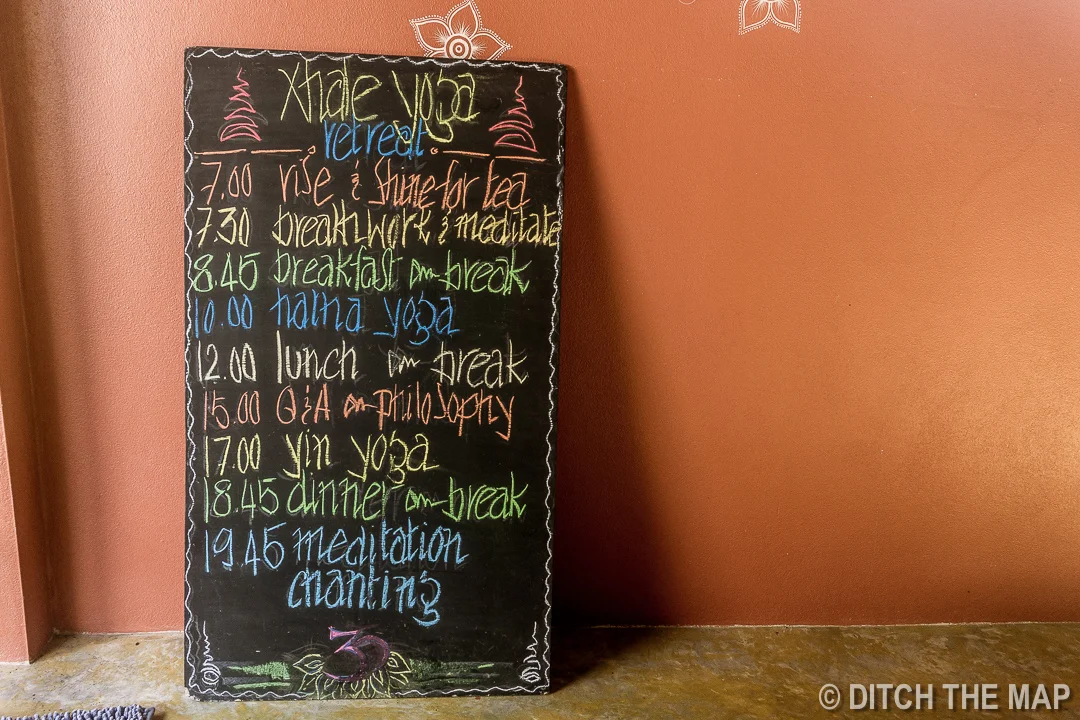 Xhale yoga
retreat
7.00 rise & shine for tea
7.30 breathwork & meditate
8.45 breakfast break
10.00 hatha yoga
12.00 lunch break
15.00 Q&A philosophy
17.00 yin yoga
18.45 dinner break
19.45 meditation
chanting
© DITCH THE MAP